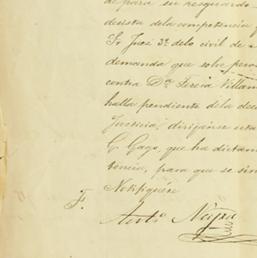 de para su resguardo
decista dela competencia
Sr Juez 3º delo civil de
demanda que sobre
contra Dª Teresa Villam
halla pendiente dela dec
Justicia, dirijanse
C. Gago, que ha dictam
tencia, para que se sir
Notifíquese
F.
Antº